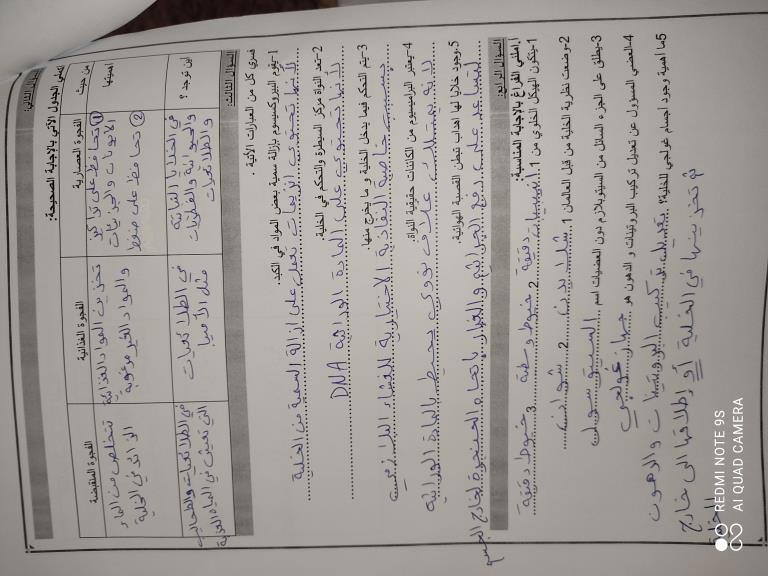 السؤال الثاني:
املئي الجدول الآتي بالإجابة الصحيحة:
من حيث
الفجوة العصارية
الفجوة الغذائية
الفجوة المنقبضة
أهميتها
① تحافظ على تراكيز الأيونات والجزيئات
② تحافظ على ضغط
تخزين المواد الغذائية والمواد الغير مرغوبة
تتخلص من الماء الزائد في الخلية
أين توجد ؟
في الخلايا النباتية والحيوانية والفطريات والطلائعيات
في الطلائعيات مثل الأميبا
في الطلائعيات والطحالب التي تعيش في المياه العذبة
السؤال الثالث:
فسري كل من العبارات الآتية .
1-يقوم البيروكسيسوم بإزالة سمية بعض المواد في الكبد.
لأنها تحتوي انزيمات تعمل على ازالة السمية من الخلية
2-تعد النواة مركز السيطرة والتحكم في الخلية
لأنها تحتوي على المادة الوراثية DNA
3-يتم التحكم فيما يدخل الخلية و ما يخرج منها.
بسبب خاصية النفاذية الاختيارية للغشاء البلازمي
4-يعتبر البراميسيوم من الكائنات حقيقية النواة.
لانه يمتلك غلاف نووي يحيط بالمادة الوراثية
5.وجود خلايا لها اهداب تبطن القصبة الهوائية.
لتساعد على دفع الجراثيم والغبار باتجاه الحنجرة لخارج الجسم
السؤال الرابع:
املئي الفراغ بالإجابة المناسبة:
1-يتكون الهيكل الخلوي من 1 أنيبيبات دقيقة 2 خيوط وسطية 3 خيوط دقيقة
2-وضعت نظرية الخلية من قبل العالمان 1 شلايدن 2 شوان
3-يطلق على الجزء السائل من السيتوبلازم دون العضيات اسم السيتوسول
4-العضي المسؤول عن تعديل تركيب البروتينات و الدهون هو جهاز غولجي
5ما أهمية وجود اجسام غولجي للخلية؟ تعديل تركيب البروتينات والدهون
ثم تخزينها في الخلية أو إطلاقها الى خارج
الخلية
REDMI NOTE 9S
AI QUAD CAMERA